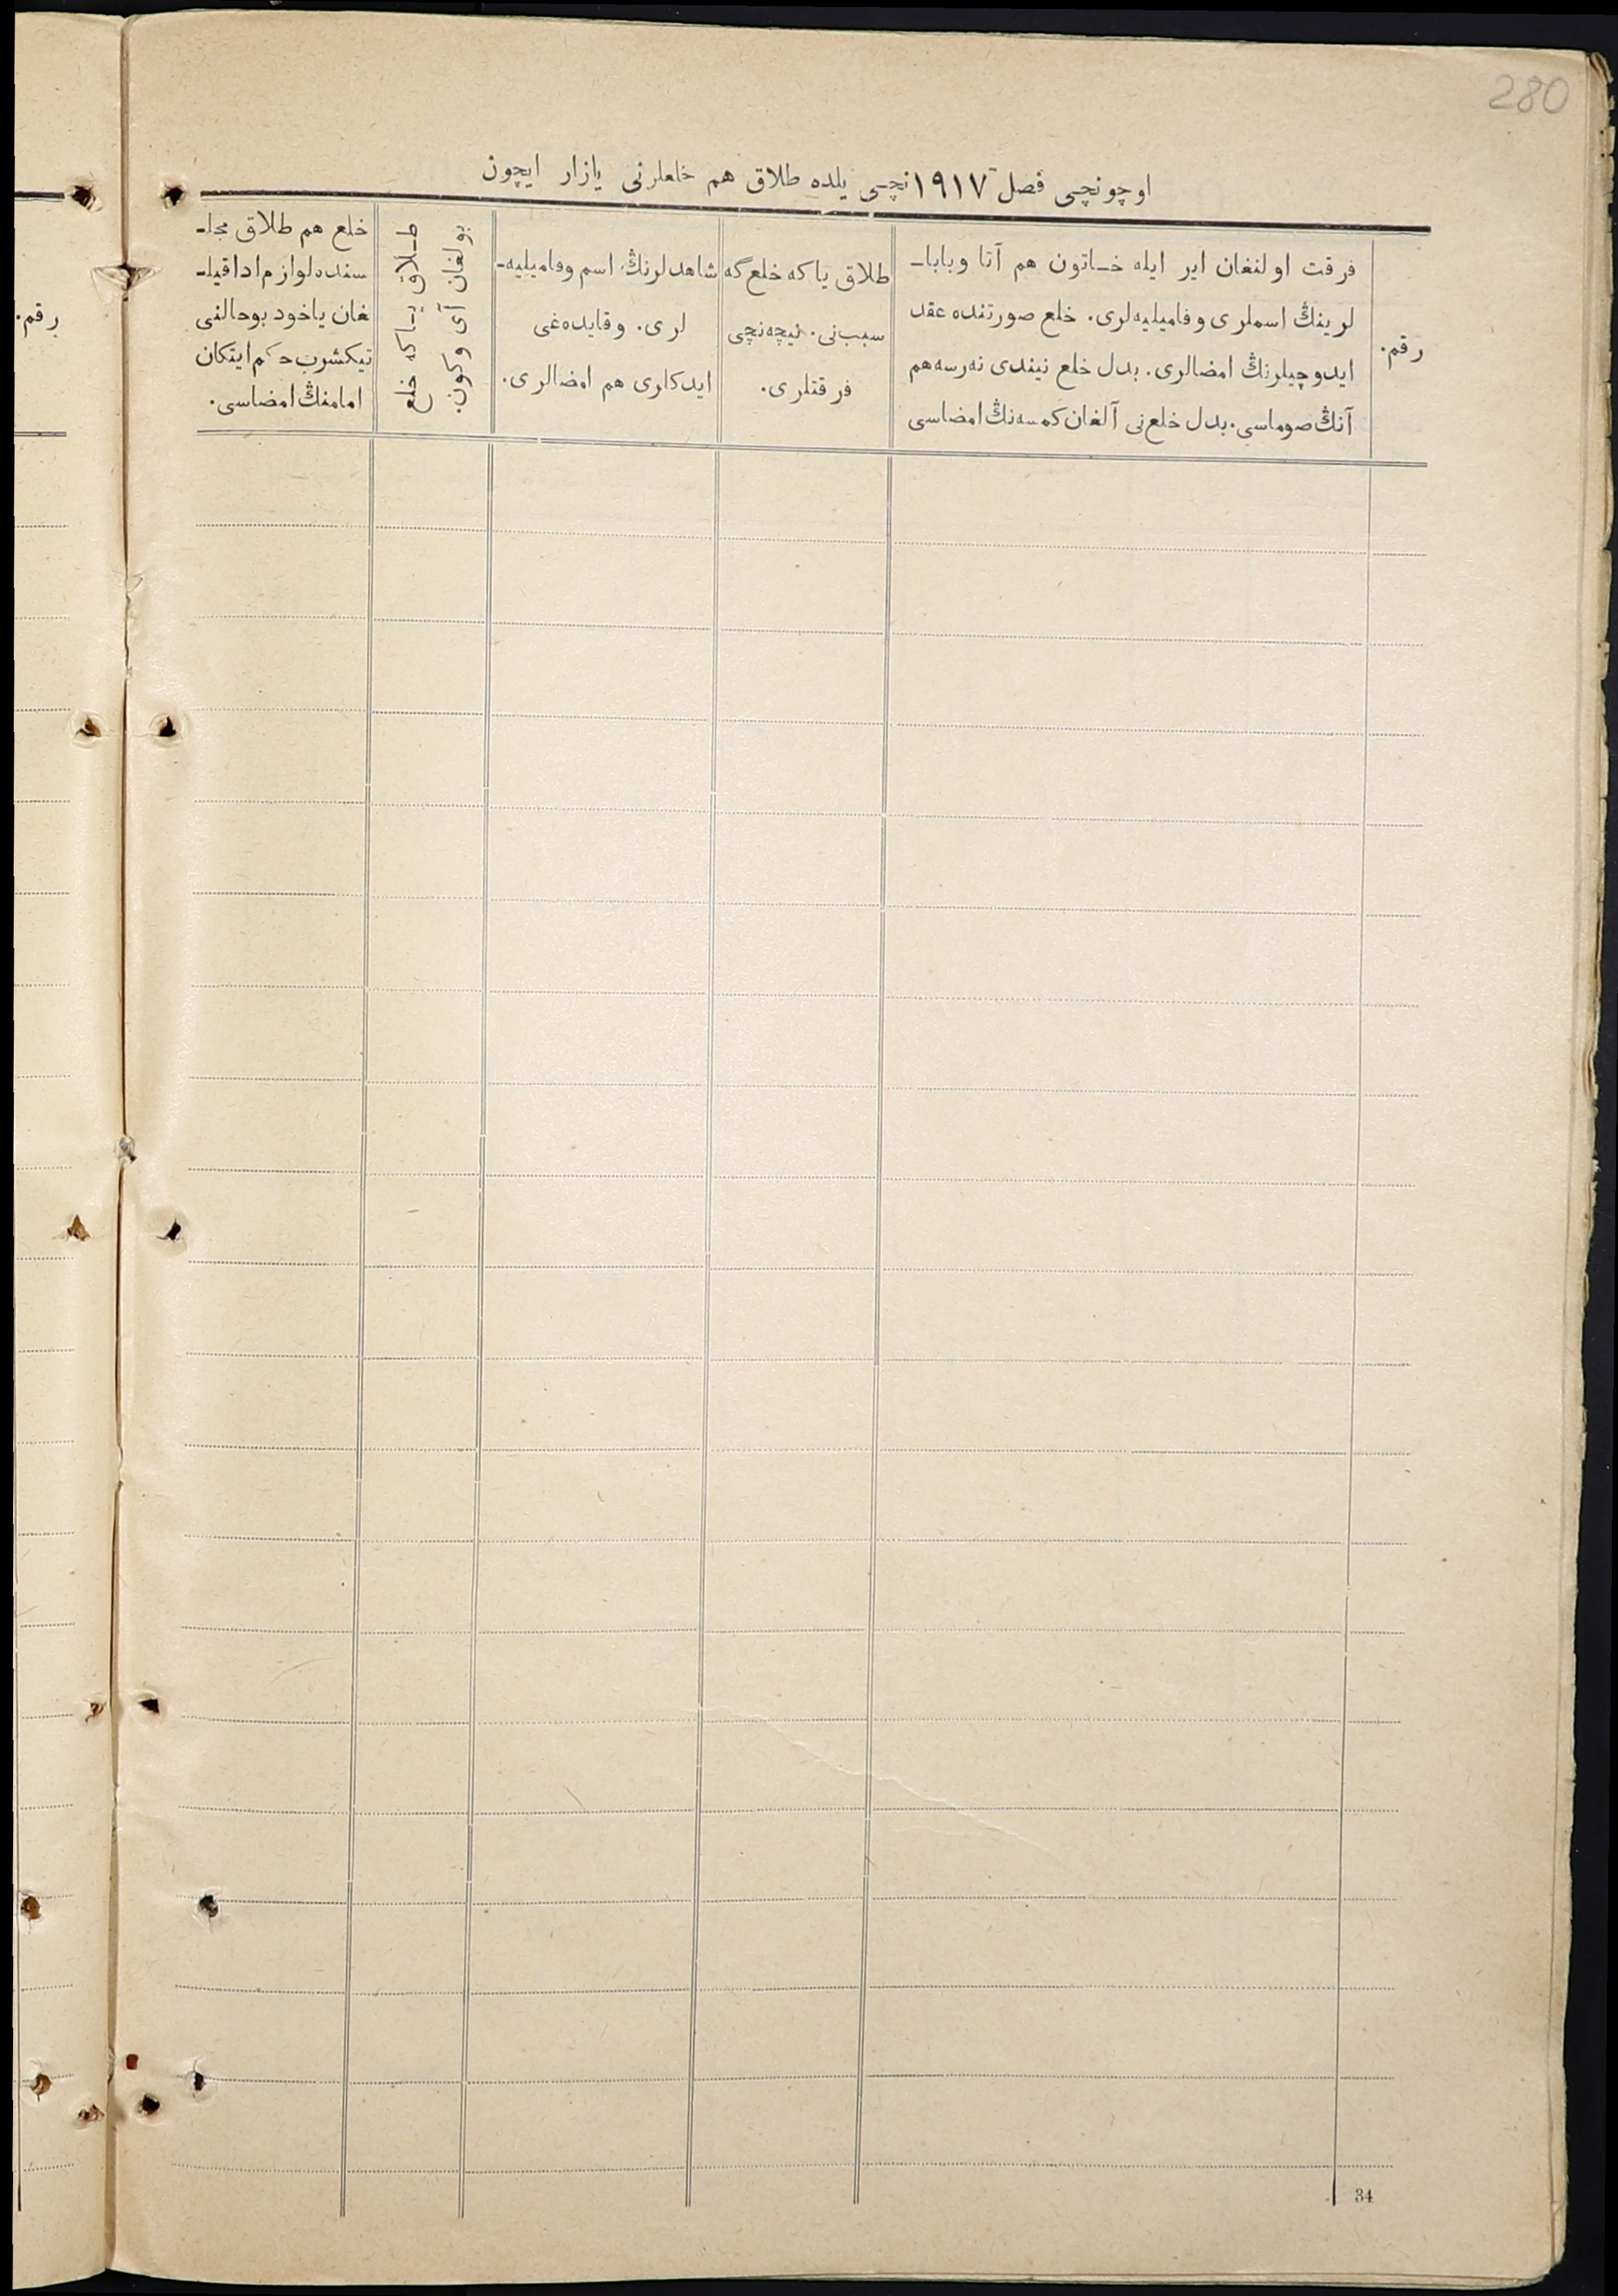 280
اوچونچی فصل ۱۹۱۷نچی یلده طلاق هم خلعلرنی یازار ایچون
رقم.
فرقت اولنغان ایر ایله خاتون هم آتا وبابا-
لرینڭ اسملری وفامیلیه‌لری. خلع صورتنده عقد
ایدوچیلرنڭ امضالری. بدل خلع نیندی نه‌رسه هم
آنڭ صوماسی. بدل خلع‌نی آلغان کمسه‌نڭ امضاسی
طلاق یاکه خلع گه
سبب‌نی. نیچه‌نچی
فرقتلری.
شاهدلرنڭ اسم وفامیلیه-
لری. وقایده‌غی
ایدکلری هم امضالری.
طلاق یاکه خلع
بولغان آی وکون.
خلع هم طلاق مجل-
سنده لوازم ادا قیل-
غان یاخود بوحالنی
تیکشرب حکم ایتکان
امامنڭ امضاسی.
رقم.
34